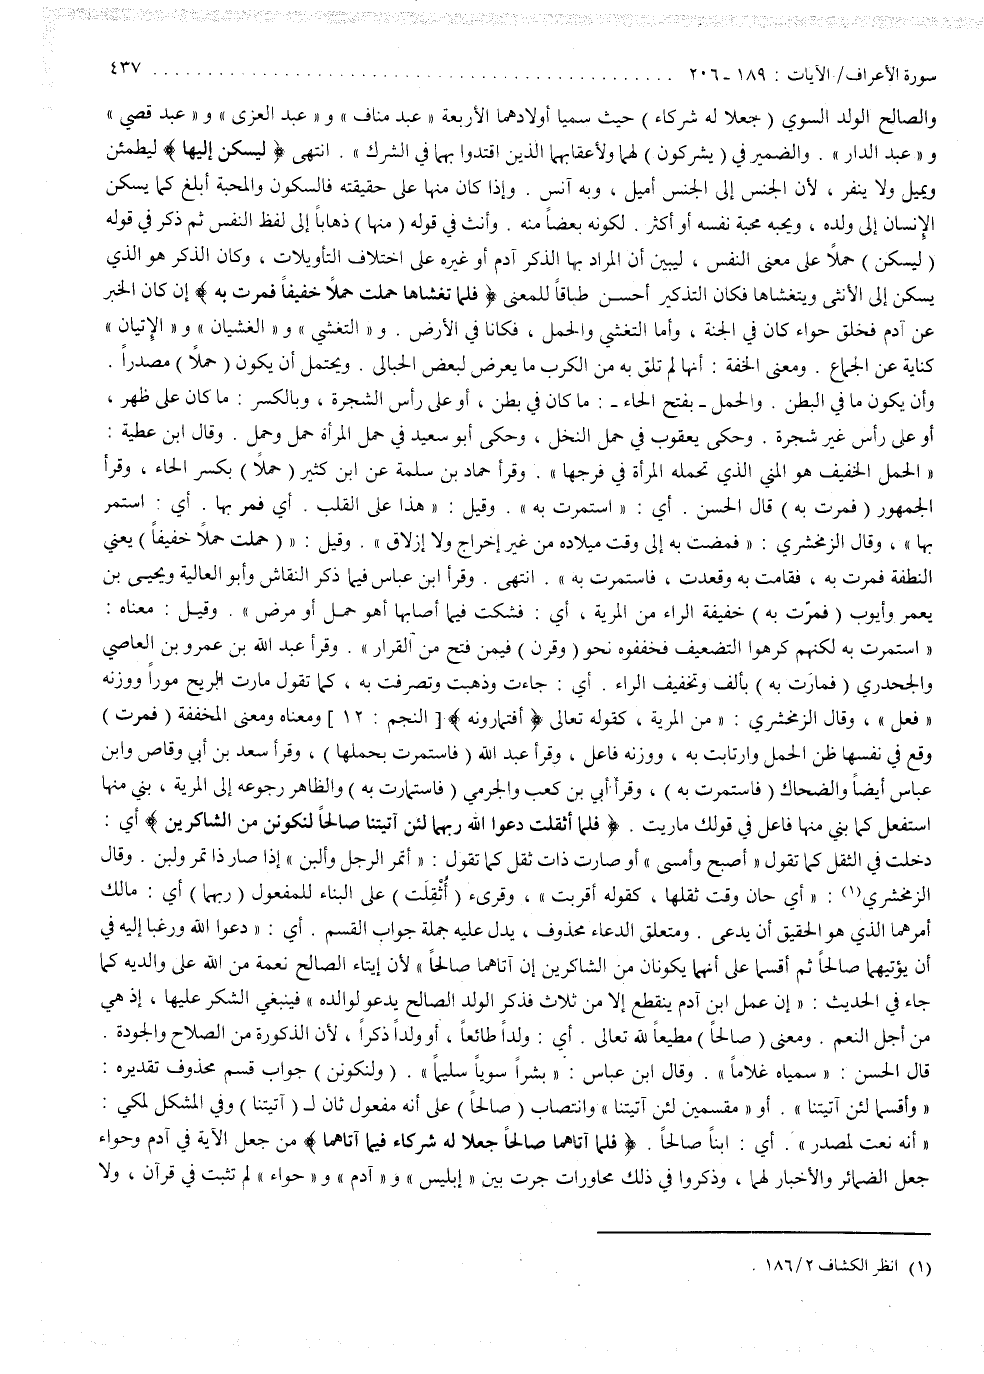 سورة الأعراف/ الآيات : ١٨٩ ـ ٢٠٦ . . . . . . . . . . . . . . . . . . . . . . . . . . . . . . . . . . . . . . . . . . . . ٤٣٧
والصالح الولد السوي ( جعلا له شركاء ) حيث سميا أولادهما الأربعة « عبد مناف » و « عبد العزى » و « عبد قصي »
و « عبد الدار » . والضمير في ( يشركون ) لهما ولأعقابهما الذين اقتدوا بهما في الشرك » . انتهى ﴿ ليسكن إليها ﴾ ليطمئن
ويميل ولا ينفر ، لأن الجنس إلى الجنس أميل ، وبه آنس . وإذا كان منها على حقيقته فالسكون والمحبة أبلغ كما يسكن
الإنسان إلى ولده ، ويحبه محبة نفسه أو أكثر . لكونه بعضاً منه . وأنث في قوله ( منها ) ذهاباً إلى لفظ النفس ثم ذكر في قوله
( ليسكن ) حملاً على معنى النفس ، ليبين أن المراد بها الذكر آدم أو غيره على اختلاف التأويلات ، وكان الذكر هو الذي
يسكن إلى الأنثى ويتغشاها فكان التذكير أحسن طباقاً للمعنى ﴿ فلما تغشاها حملت حملاً خفيفاً فمرت به ﴾ إن كان الخبر
عن آدم فخلق حواء كان في الجنة ، وأما التغشي والحمل ، فكانا في الأرض . و « التغشي » و « الغشيان » و « الإتيان »
كناية عن الجماع . ومعنى الخفة : أنها لم تلق به من الكرب ما يعرض لبعض الحبالى . ويحتمل أن يكون ( حملاً ) مصدراً .
وأن يكون ما في البطن . والحمل ـ بفتح الحاء ـ : ما كان في بطن ، أو على رأس الشجرة ، وبالكسر : ما كان على ظهر ،
أو على رأس غير شجرة . وحكى يعقوب في حمل النخل ، وحكى أبو سعيد في حمل المرأة حمل وحمل . وقال ابن عطية :
« الحمل الخفيف هو المني الذي تحمله المرأة في فرجها » . وقرأ حماد بن سلمة عن ابن كثير ( حملاً ) بكسر الحاء ، وقرأ
الجمهور ( فمرت به ) قال الحسن . أي : « استمرت به » . وقيل : « هذا على القلب . أي فمر بها . أي : استمر
بها » ، وقال الزمخشري : « فمضت به إلى وقت ميلاده من غير إخراج ولا إزلاق » . وقيل : « ( حملت حملاً خفيفاً ) يعني
النطفة فمرت به ، فقامت به وقعدت ، فاستمرت به » . انتهى . وقرأ ابن عباس فيما ذكر النقاش وأبو العالية ويحيى بن
يعمر وأيوب ( فمرّت به ) خفيفة الراء من المرية ، أي : فشكت فيما أصابها أهو حمل أو مرض » . وقيل : معناه :
« استمرت به لكنهم كرهوا التضعيف فخففوه نحو ( وقرن ) فيمن فتح من القرار » . وقرأ عبد الله بن عمرو بن العاصي
والجحدري ( فمارت به ) بألف وتخفيف الراء . أي : جاءت وذهبت وتصرفت به ، كما تقول مارت الريح موراً ووزنه
« فعل » ، وقال الزمخشري : « من المرية ، كقوله تعالى ﴿ أفتمارونه ﴾ [ النجم : ١٢ ] ومعناه ومعنى المخففة ( فمرت )
وقع في نفسها ظن الحمل وارتابت به ، ووزنه فاعل ، وقرأ عبد الله ( فاستمرت بحملها ) ، وقرأ سعد بن أبي وقاص وابن
عباس أيضاً والضحاك ( فاستمرت به ) ، وقرأ أبي بن كعب والجرمي ( فاستمارت به ) والظاهر رجوعه إلى المرية ، بني منها
استفعل كما بني منها فاعل في قولك ماريت . ﴿ فلما أثقلت دعوا الله ربهما لئن آتيتنا صالحاً لنكونن من الشاكرين ﴾ أي :
دخلت في الثقل كما تقول « أصبح وأمسى » أو صارت ذات ثقل كما تقول : « أتمر الرجل وألبن » إذا صار ذا تمر ولبن . وقال
الزمخشري(١) : « أي حان وقت ثقلها ، كقوله أقربت » ، وقرىء ( أُثْقِلَت ) على البناء للمفعول ( ربهما ) أي : مالك
أمرهما الذي هو الحقيق أن يدعى . ومتعلق الدعاء محذوف ، يدل عليه جملة جواب القسم . أي : « دعوا الله ورغبا إليه في
أن يؤتيهما صالحاً ثم أقسما على أنهما يكونان من الشاكرين إن آتاهما صالحاً » لأن إيتاء الصالح نعمة من الله على والديه كما
جاء في الحديث : « إن عمل ابن آدم ينقطع إلا من ثلاث فذكر الولد الصالح يدعو لوالده » فينبغي الشكر عليها ، إذ هي
من أجل النعم . ومعنى ( صالحاً ) مطيعاً لله تعالى . أي : ولداً طائعاً ، أو ولداً ذكراً ، لأن الذكورة من الصلاح والجودة .
قال الحسن : « سمياه غلاماً » . وقال ابن عباس : « بشراً سوياً سليماً » . ( ولنكونن ) جواب قسم محذوف تقديره :
« وأقسما لئن آتيتنا » . أو « مقسمين لئن آتيتنا » وانتصاب ( صالحاً ) على أنه مفعول ثان لـ ( آتيتنا ) وفي المشكل لمكي :
« أنه نعت لمصدر » . أي : ابناً صالحاً . ﴿ فلما آتاهما صالحاً جعلا له شركاء فيما آتاهما ﴾ من جعل الآية في آدم وحواء
جعل الضمائر والأخبار لهما ، وذكروا في ذلك محاورات جرت بين « إبليس » و « آدم » و « حواء » لم تثبت في قرآن ، ولا
(١) انظر الكشاف ٢/ ١٨٦ .